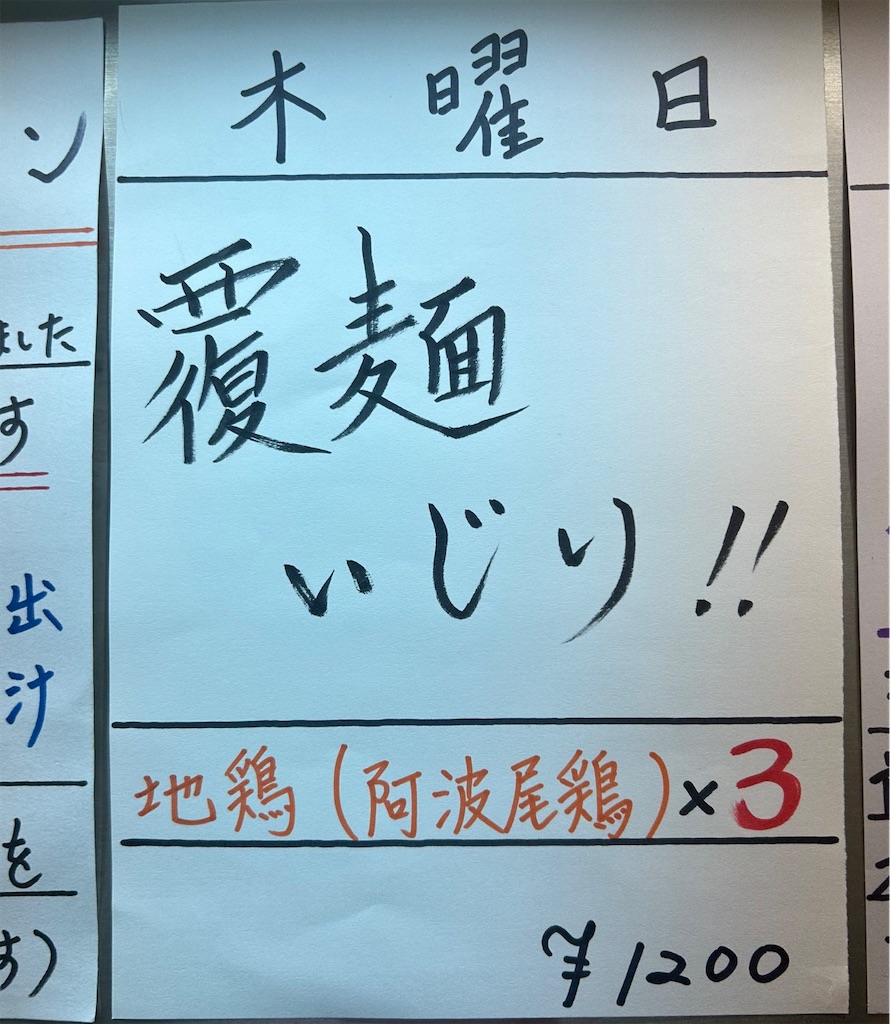 木曜日
覆麺
いじり!!
地鶏(阿波尾鶏)×3
¥1200
ン
ました
す
出
汁
を
す)